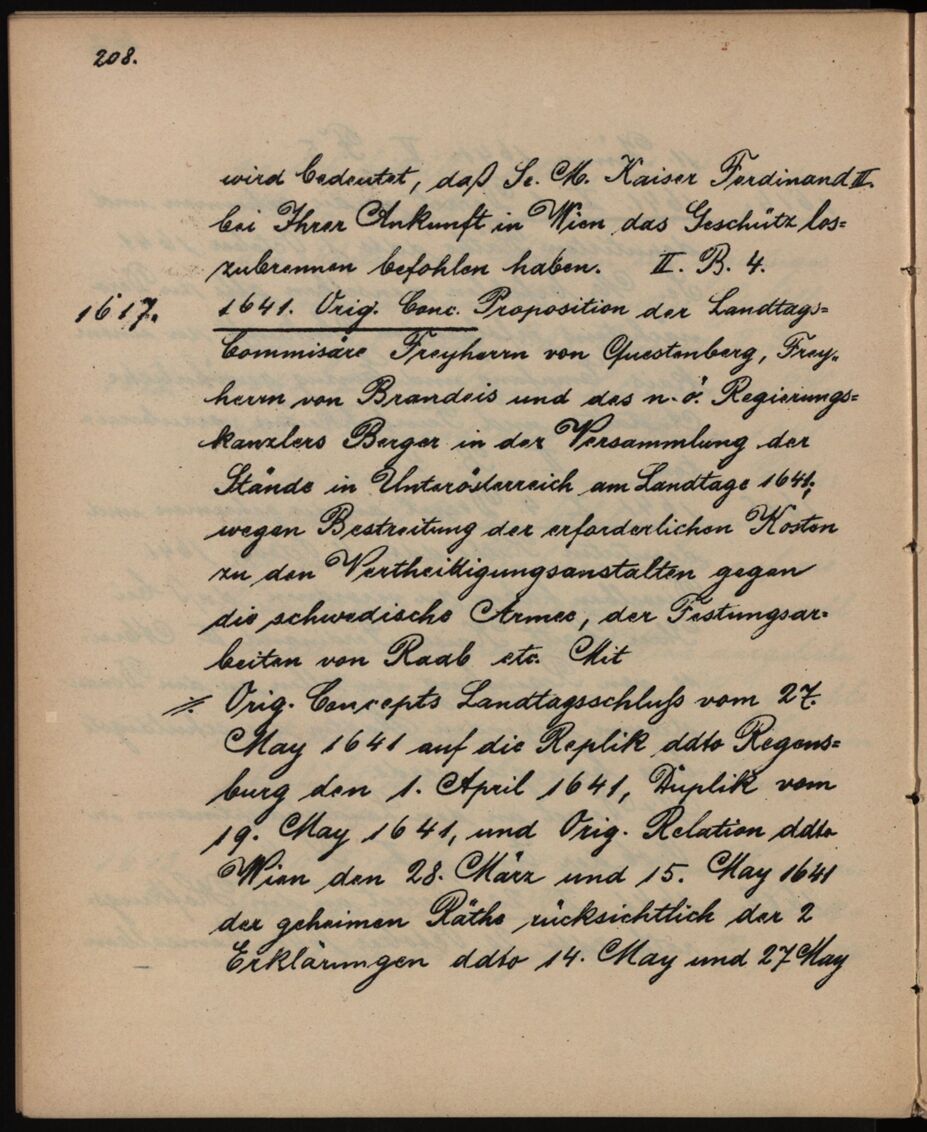 208.
wird bedeutet, daß Se. M. Kaiser Ferdinand II.
bei Ihrer Ankunft in Wien das Geschütz los=
zubrennen befohlen haben. II. B. 4.
1617. 1641. Orig. Conc. Proposition der Landtags=
Commisäre Freyherrn von Questenberg, Frey„
herrn von Brandeis und des n. ö. Regierungs=
kanzlers Berger in der Versammlung der
Stände in Unterösterreich am Landtage 1641;
wegen Bestreitung der erforderlichen Kosten
zu den Vertheidigungsanstalten gegen
die schwedische Armee, der Festungsar=
beiten von Raab etc. Mit
⁒ Orig. Concepts Landtagsschluß vom 27.
May 1641 auf die Replik ddto Regens=
burg den 1. April 1641, Duplik vom
19. May 1641, und Orig. Relation ddto
Wien den 28. März und 15. May 1641
der geheimen Räthe rücksichtlich der 2
Erklärungen ddto 14. May und 27 May